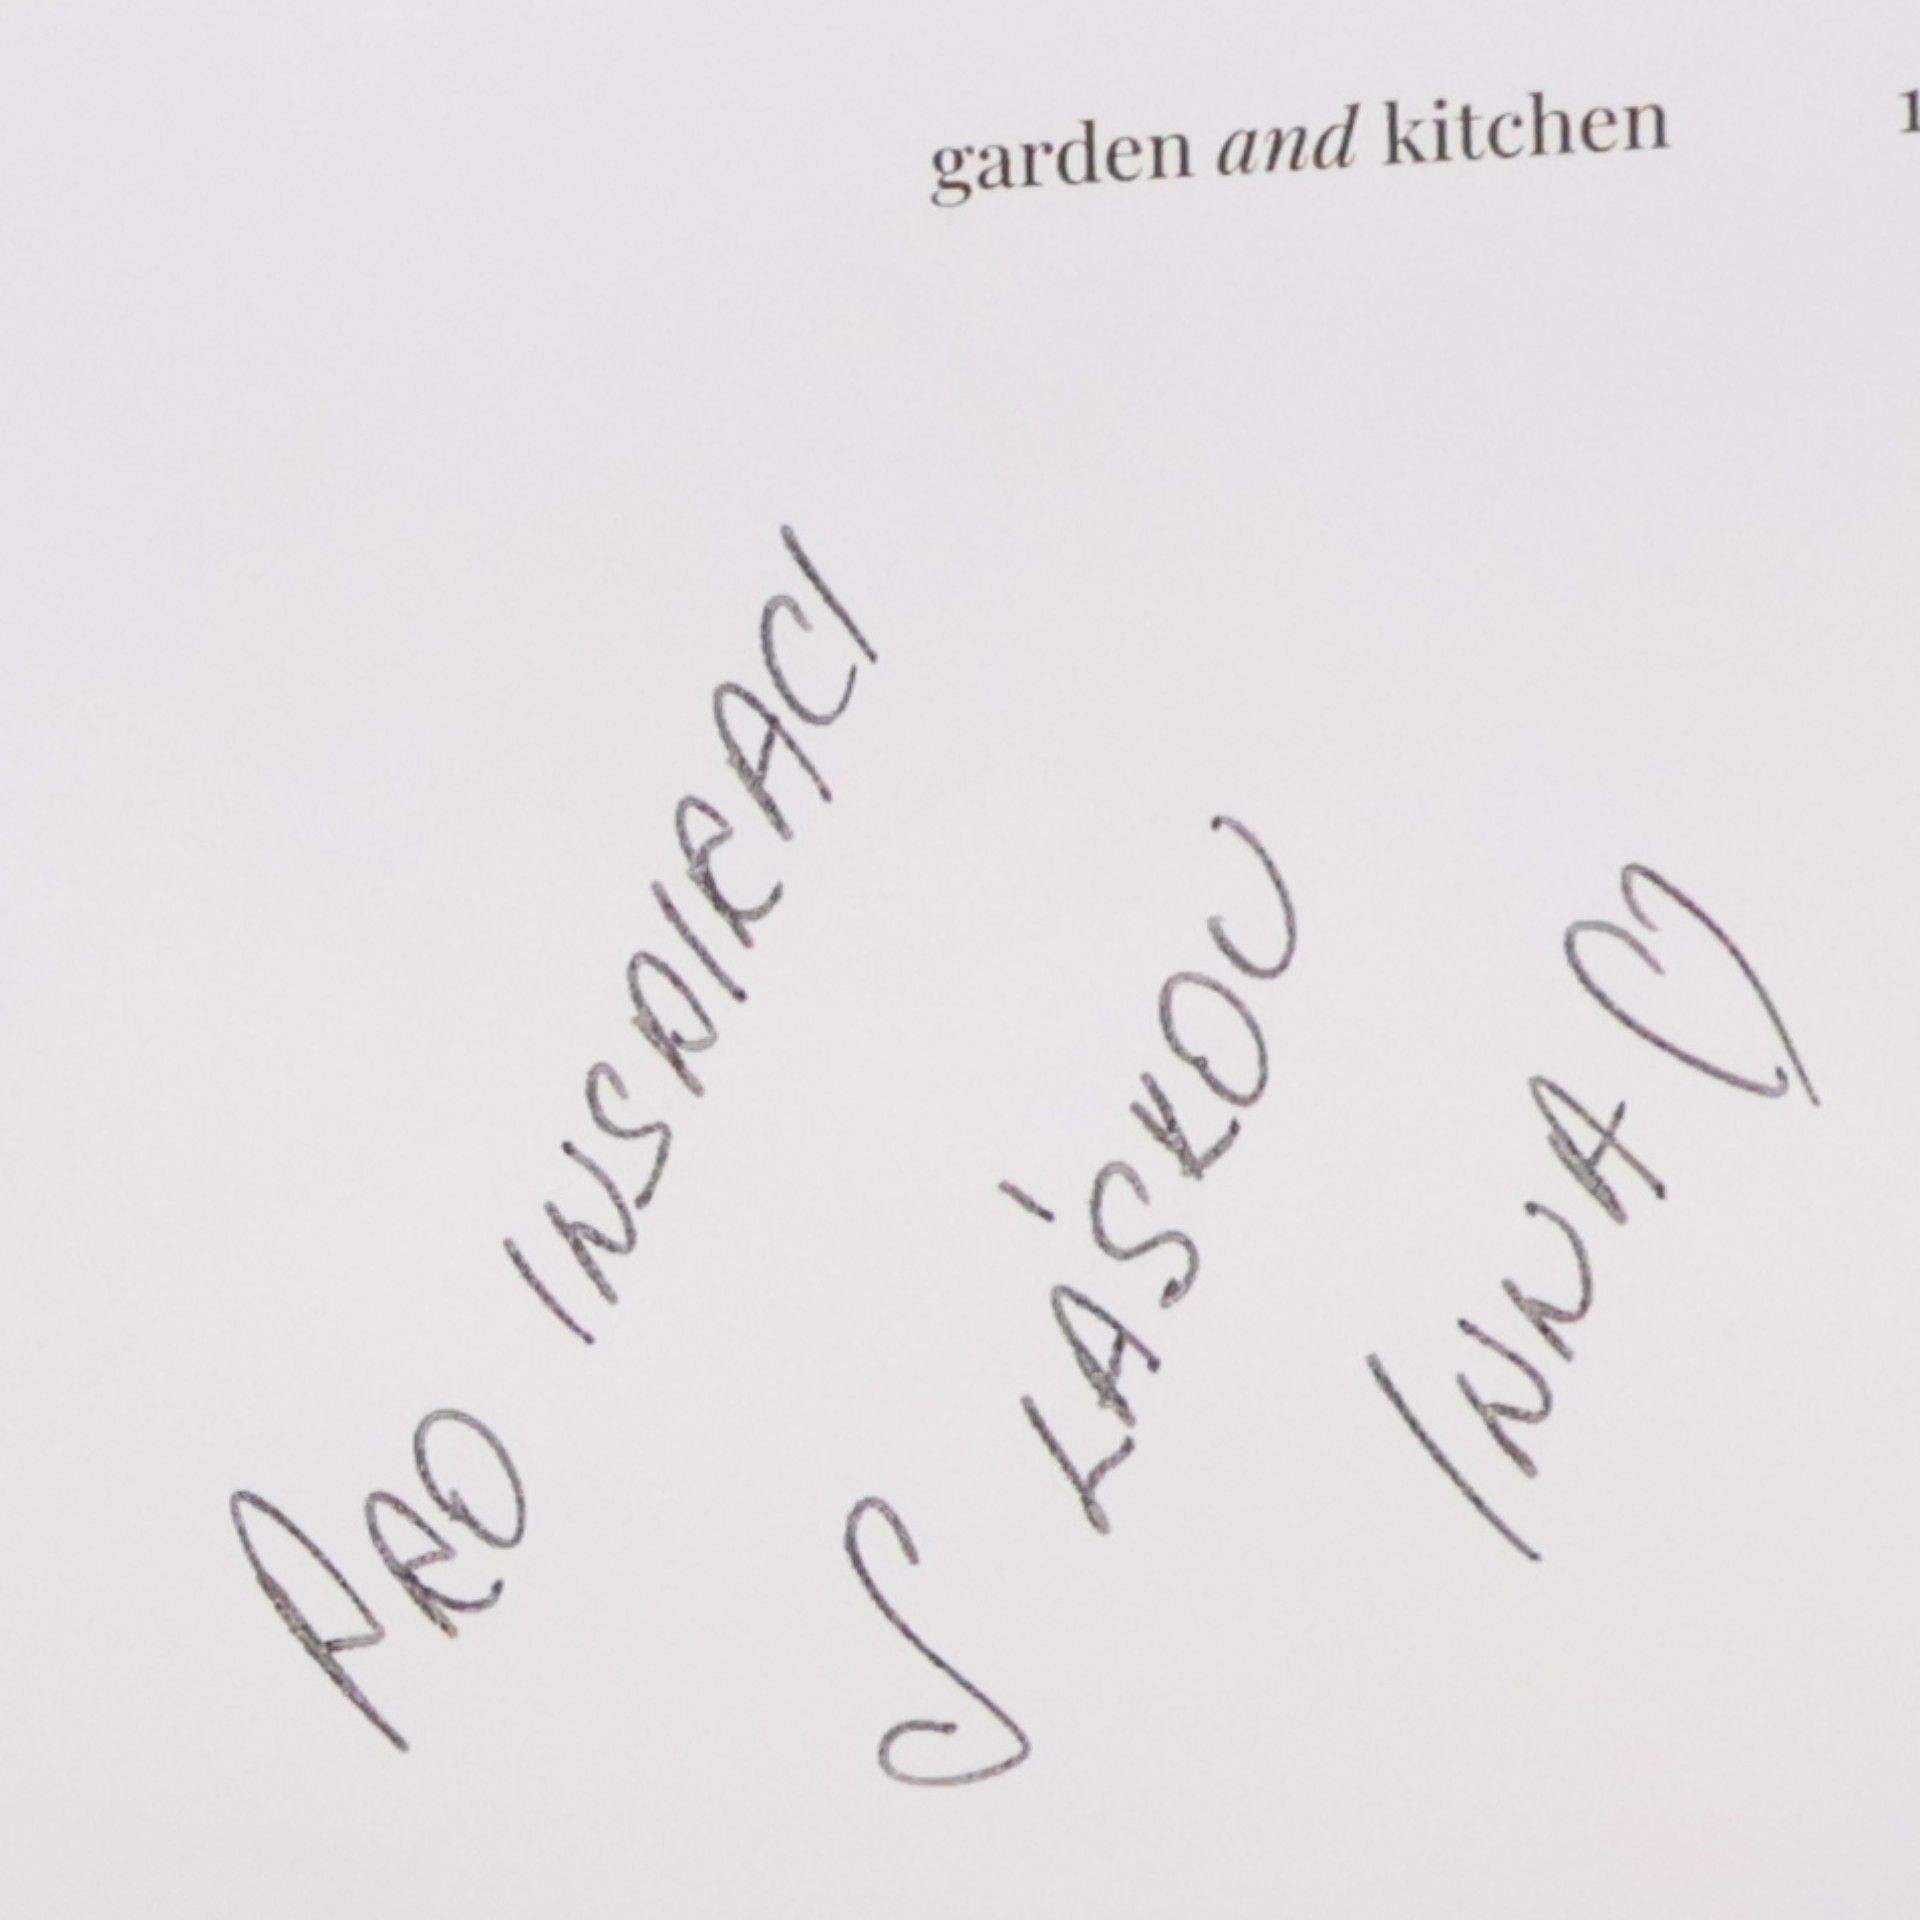 garden and kitchen 1
PRO INSPIRACI
S LÁSKOU
INNA ♡